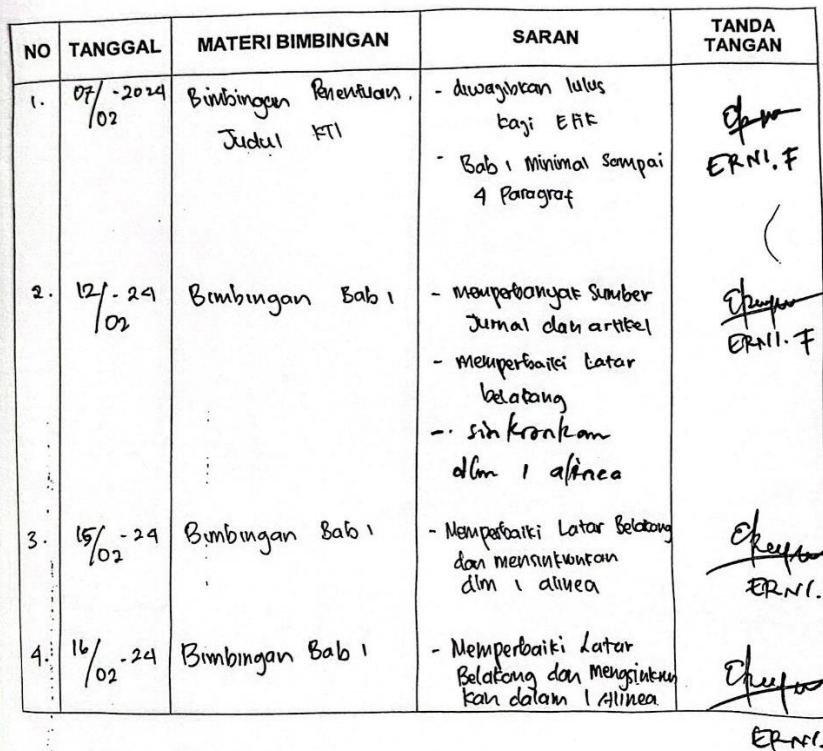 NO TANGGAL MATERI BIMBINGAN SARAN TANDA TANGAN
1. 07/02-2024 Bimbingan Penentuan. - diwajibkan lulus
Judul KTI kaji Etik
- Bab 1 Minimal Sampai
4 Paragraf
ERNI. F
2. 12/02-24 Bimbingan Bab 1 - Memperbanyak Sumber
Jurnal dan artikel
ERNI. F
- Memperbaiki Latar
belakang
- sinkronkan
dlm 1 alinea
3. 15/02-24 Bimbingan Bab 1 - Memperbaiki Latar Belakang
dan mensinkronkan
dlm 1 alinea
ERNI.
4. 16/02-24 Bimbingan Bab 1 - Memperbaiki Latar
Belakang dan Mengsinkron
kan dalam 1 Alinea
ERNI.